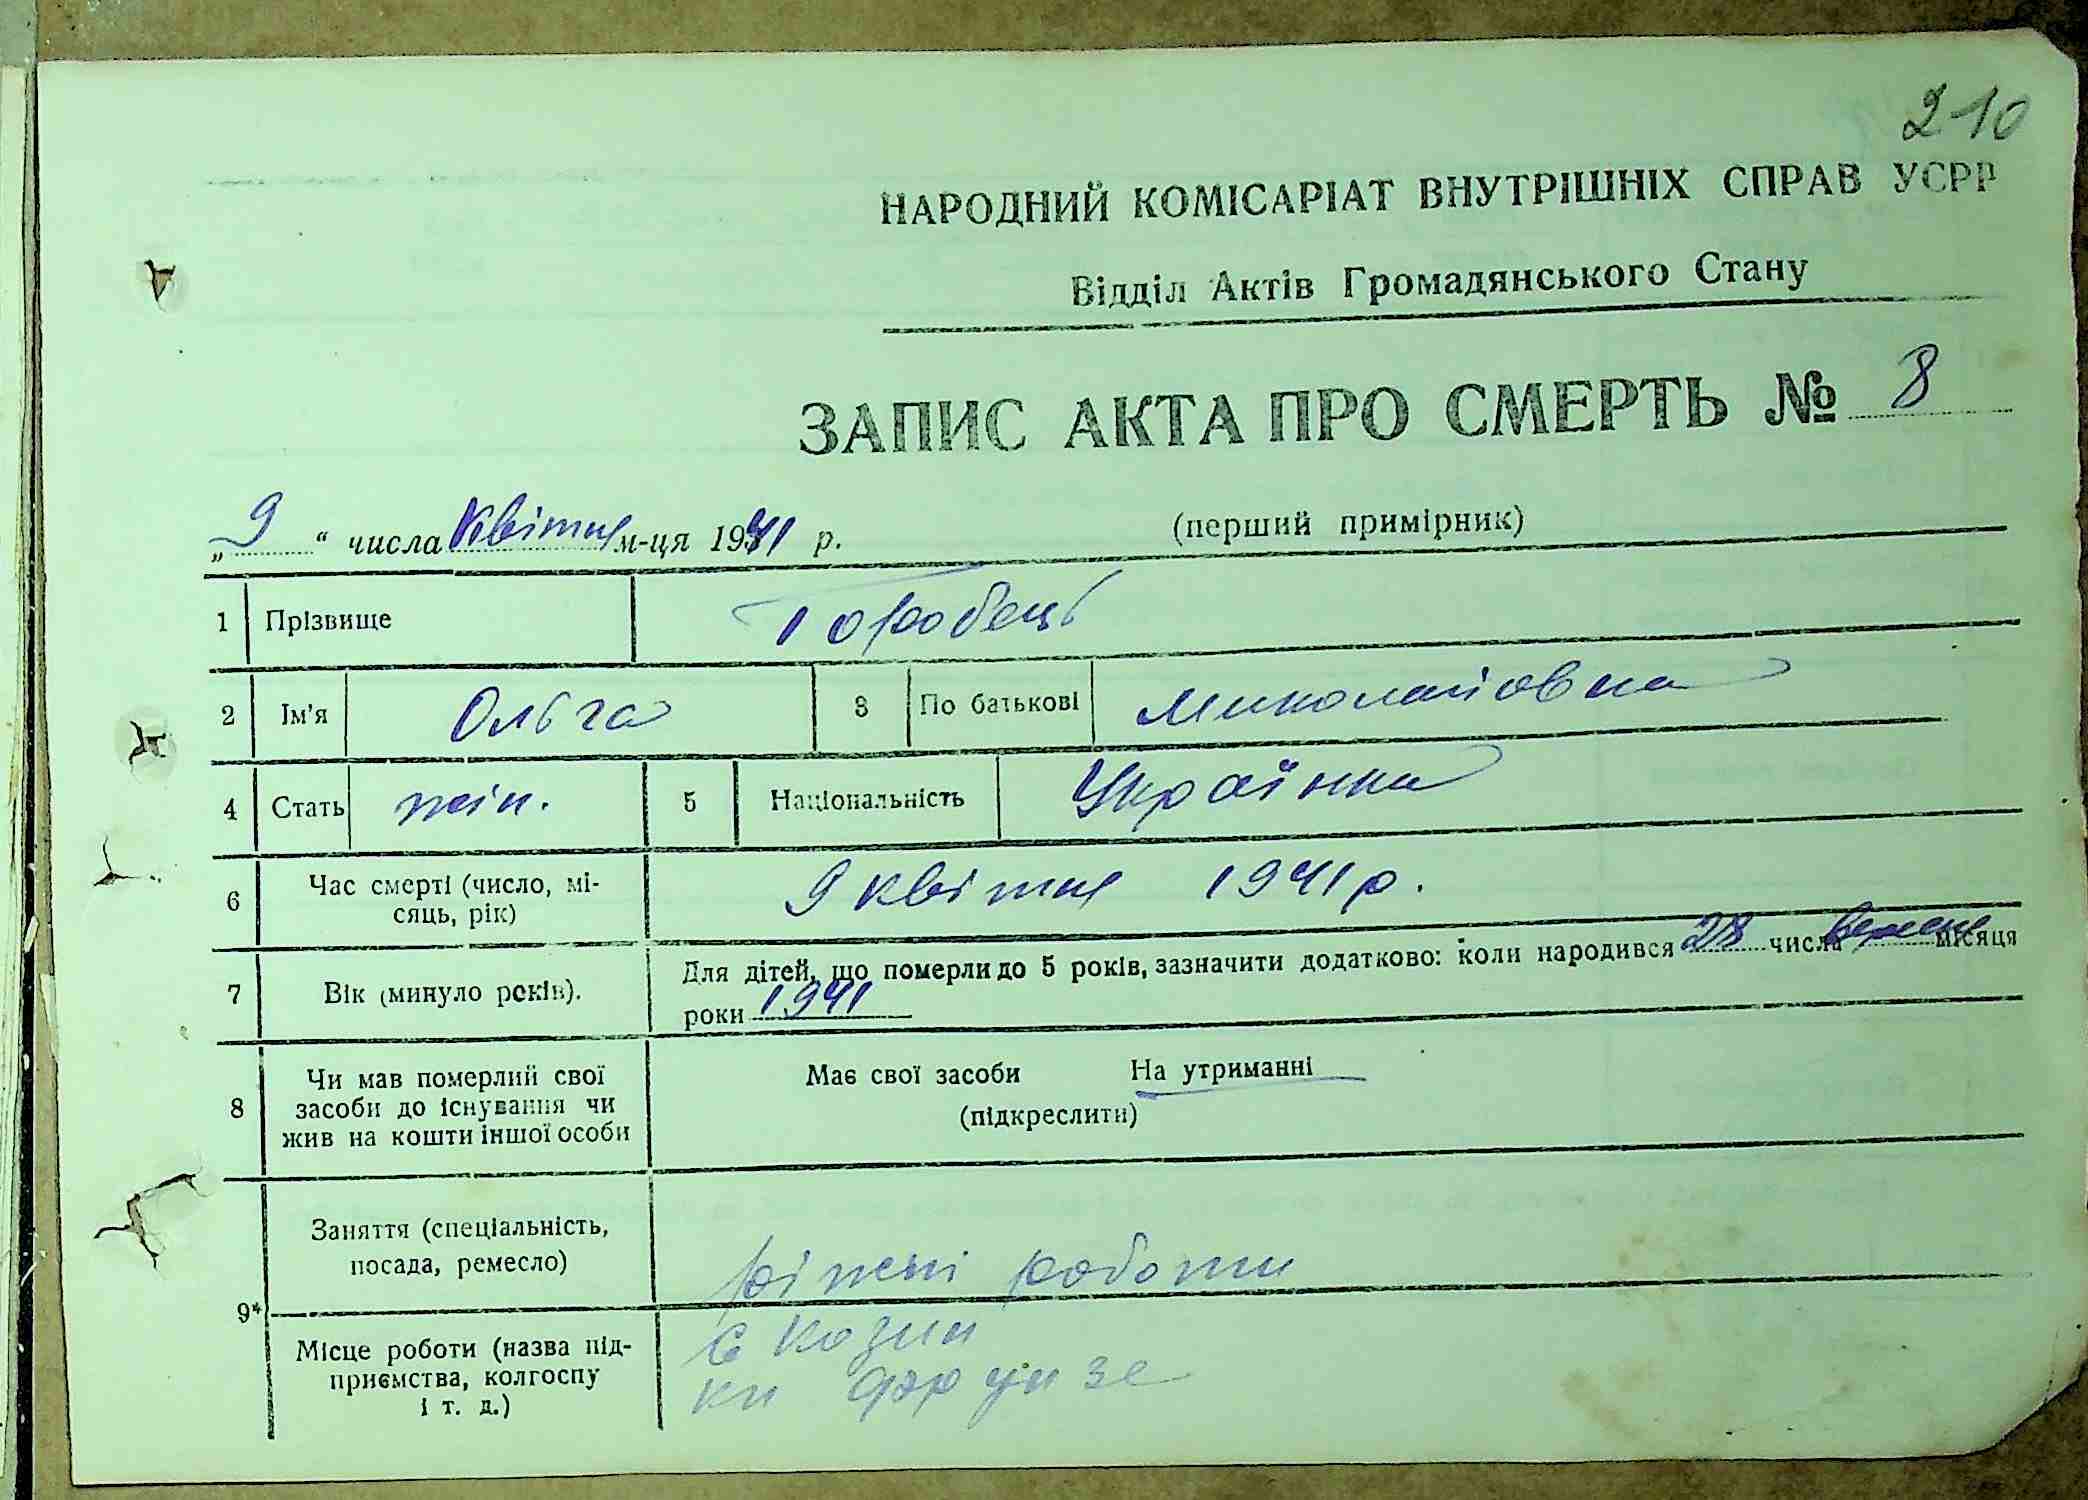 210
НАРОДНИЙ КОМІСАРІАТ ВНУТРІШНІХ СПРАВ УСРР
Відділ Актів Громадянського Стану
ЗАПИС АКТА ПРО СМЕРТЬ № 8
„9“ числа Квітня м-ця 1941 р. (перший примірник)
1 Прізвище Горобець
2 Ім'я Ольга 3 По батькові Миколайовна
4 Стать жін. 5 Національність Українка
6 Час смерті (число, мі-
сяць, рік) 9 квітня 1941 р.
7 Вік (минуло років). Для дітей, що померли до 5 років, зазначити додатково: коли народився 28 числа місяця
роки 1941
8 Чи мав померлий свої
засоби до існування чи
жив на кошти іншої особи
Має свої засоби На утриманні
(підкреслити)
9* Заняття (спеціальність,
посада, ремесло) ріжні роботи
Місце роботи (назва під-
приємства, колгоспу
і т. д.)
с Козин
кп Фрунзе